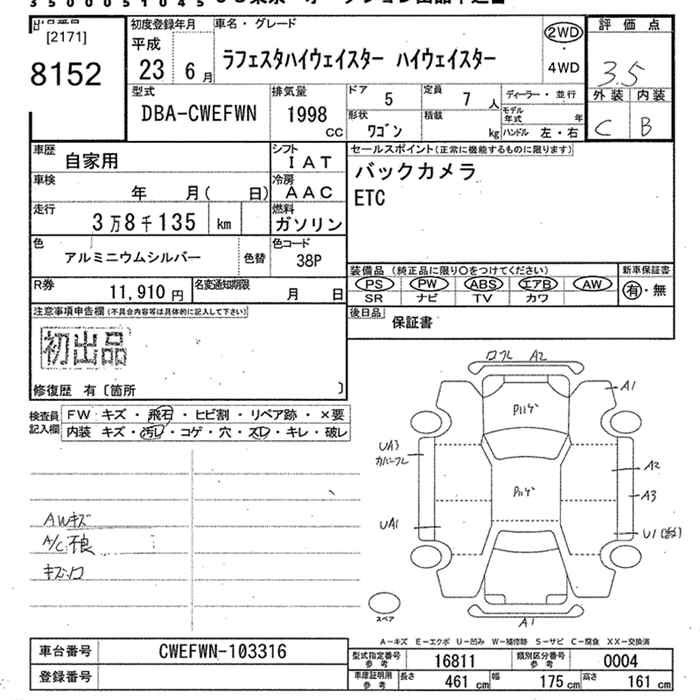 3500051045
出品番号
[2171]
8152
初度登録年月
平成
23 6月
車名・グレード
ラフェスタハイウェイスター ハイウェイスター
2WD
・
4WD
評価点
3.5
外装 内装
C B
型式
DBA-CWEFWN
排気量
1998
CC
ドア 5
定員 7 人
形状 ワゴン
積載 kg
ディーラー・並行
モデル年式 年
ハンドル 左・右
車歴
自家用
シフト
IAT
車検
年 月( 日)
冷房
AAC
走行
3万8千135 km
燃料
ガソリン
色
アルミニウムシルバー
色替
色コード
38P
R券
11,910円
名変通知期限
月 日
セールスポイント(正常に機能するものに限ります)
バックカメラ
ETC
装備品 (純正品に限り○をつけてください)
PS PW ABS エアB AW
SR ナビ TV カワ
新車保証書
有・無
後日品
保証書
注意事項申告欄(不具合内容等は具体的に記入して下さい)
初出品
修復歴 有〔箇所 〕
検査員記入欄
FW キズ・飛石・ヒビ割・リペア跡・×要
内装 キズ・汚レ・コゲ・穴・スレ・キレ・破レ
AWキズ
A/C不良
A2
A1
UA3
UA1
A2
A3
U1
A1
スペア
A-キズ E-エクボ U-凹み W-補修跡 S-サビ C-腐食 XX-交換済
車台番号
CWEFWN-103316
登録番号
型式指定番号参考
16811
類別区分番号参考
0004
車庫証明用参考
長さ 461 cm
幅 175 cm
高さ 161 cm